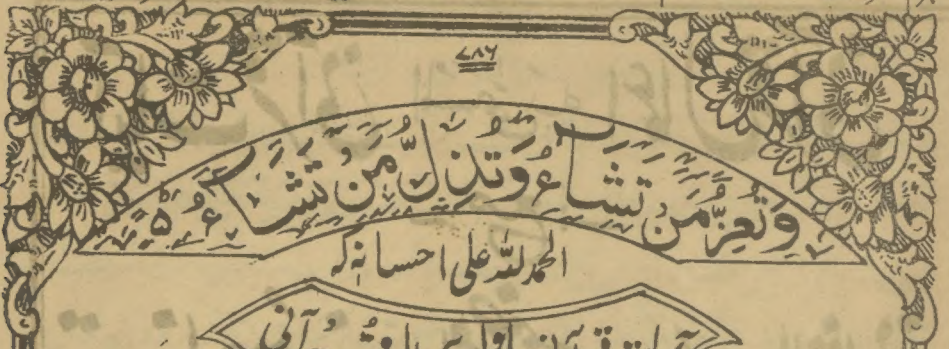 ۷۸۶
وَتُعِزُّ مَنْ تَشَاءُ وَتُذِلُّ مَنْ تَشَاءُ
الحمد للہ علی احسانہٖ کہ